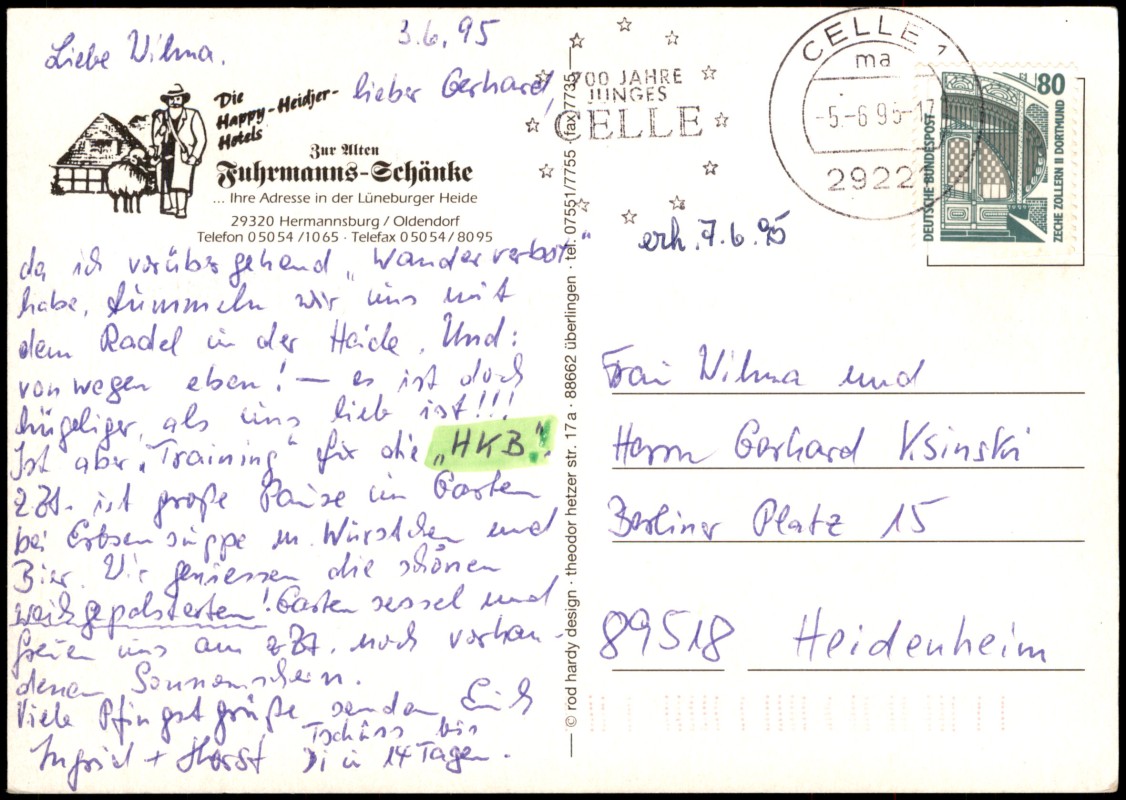 3.6.95
Liebe Wilma,
lieber Gerhard,
Die
Happy-Heidjer-
Hotels
Zur Alten
Fuhrmanns-Schänke
... Ihre Adresse in der Lüneburger Heide
29320 Hermannsburg / Oldendorf
Telefon 05054/1065 · Telefax 05054/8095
da ich vorübergehend „Wanderverbot"
habe, tummeln wir uns mit
dem Radel in der Heide. Und:
von wegen eben! — es ist doch
hügeliger, als uns lieb ist!!!
Ist aber „Training" für die „HKB"!
z.Zt. ist große Pause im Garten
bei Erbsensuppe m. Würstchen und
Bier. Wir geniessen die schönen
weichgepolsterten! Gartensessel und
freuen uns am z.Zt. noch vorhan-
denen Sonnenschein.
Viele Pfingstgrüße senden Euch
Ingrid + Horst
Tschüss bis
Di in 14 Tagen.
© rod hardy design · theodor hetzer str. 17a · 88662 überlingen · tel. 07551/7755 · (fax)7735
700 JAHRE
JUNGES
CELLE
CELLE 1
ma
-5.-6 95-17
2922
80
DEUTSCHE BUNDESPOST
ZECHE ZOLLERN II DORTMUND
erh. 7.6.95
Frau Wilma und
Herrn Gerhard Ksinski
Berliner Platz 15
89518 Heidenheim